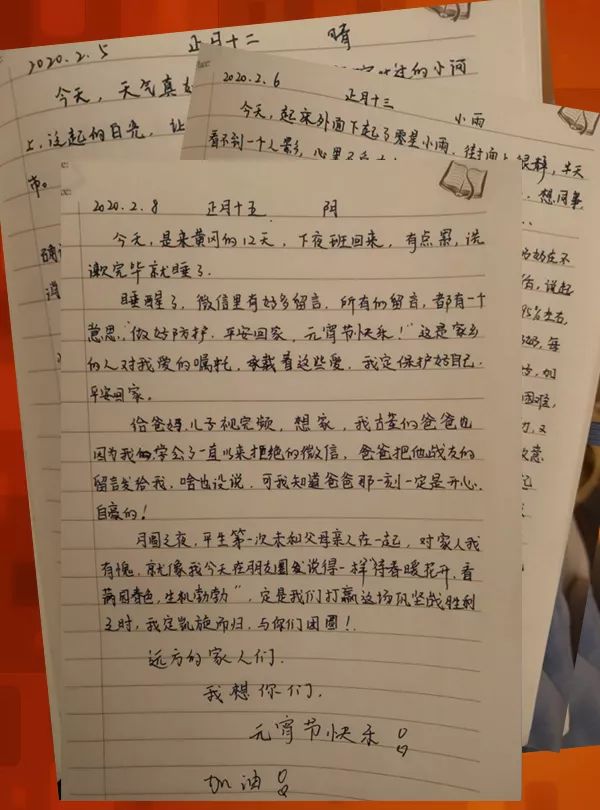 2020.2.5 正月十二 晴
今天,天气真
过的小河
上,泛起的日光,让
市。
2020.2.6 正月十三 小雨
今天,起床外面下起了零星小雨,街面上很静,半天
看不到一个人影,心里
想同事
2020.2.8 正月十五 阴
今天,是来黄冈的12天,下夜班回来,有点累,洗
漱完毕就睡了.
睡醒了,微信里有好多留言,所有的留言,都有一个
意思,"做好防护,平安回家,元宵节快乐!"这是家乡
的人对我爱的嘱托,承载着这些爱,我定保护好自己.
平安回家。
给爸妈.儿子视完频,想家,我古董的爸爸也
因为我学会了一直以来拒绝的微信,爸爸把他战友的
留言发给我,啥也没说,可我知道爸爸那一刻一定是开心.
自豪的!
月圆之夜,平生第一次未和父母亲人在一起,对家人我
有愧,就像我今天在朋友圈发说得一样"待春暖花开,看
满园春色,生机勃勃",定是我们打赢这场攻坚战胜利
之时,我定凯旋而归,与你们团圆!.
远方的家人们.
我想你们.
元宵节快乐!
加油!